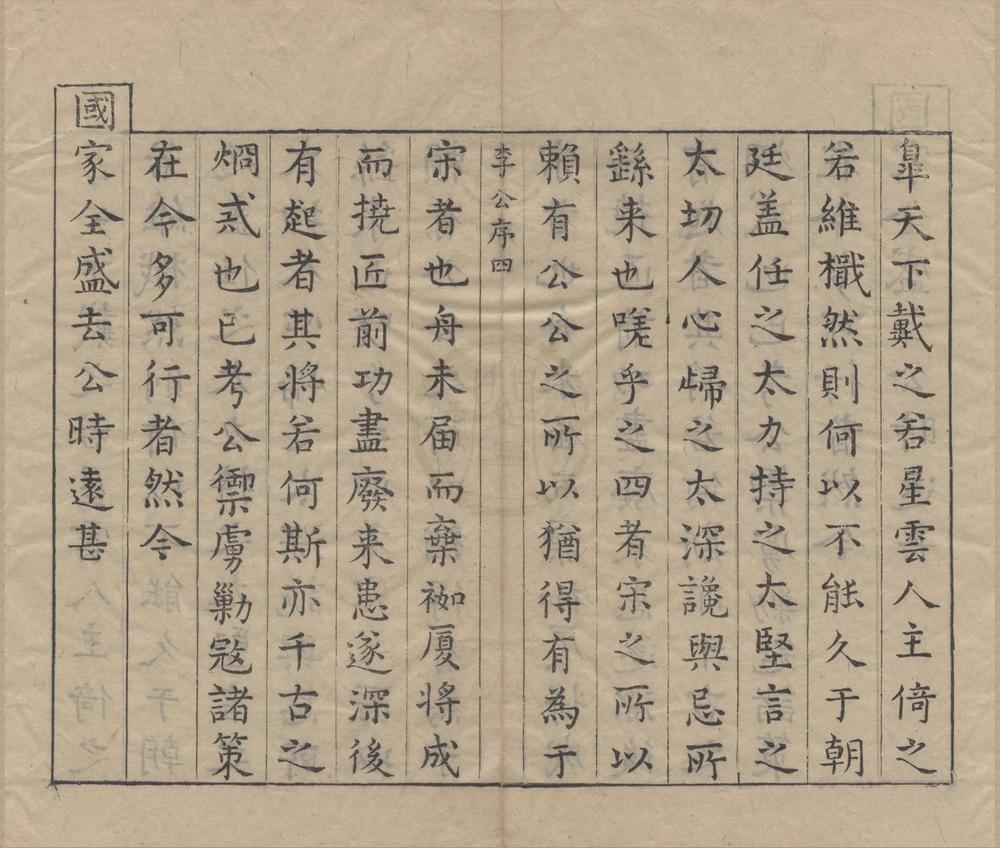 臯天下戴之若星雲人主倚之
若維檝然則何以不能久于朝
廷盖任之太力持之太堅言之
太切人心歸之太深讒與忌所
繇来也嗟乎之四者宋之所以
賴有公公之所以猶得有為于
李公序四
宋者也舟未届而棄袽厦将成
而撓匠前功盡廢来患遂深後
有起者其将若何斯亦千古之
烱戒也已考公禦虜勦冦諸策
在今多可行者然今
國家全盛去公時遠甚